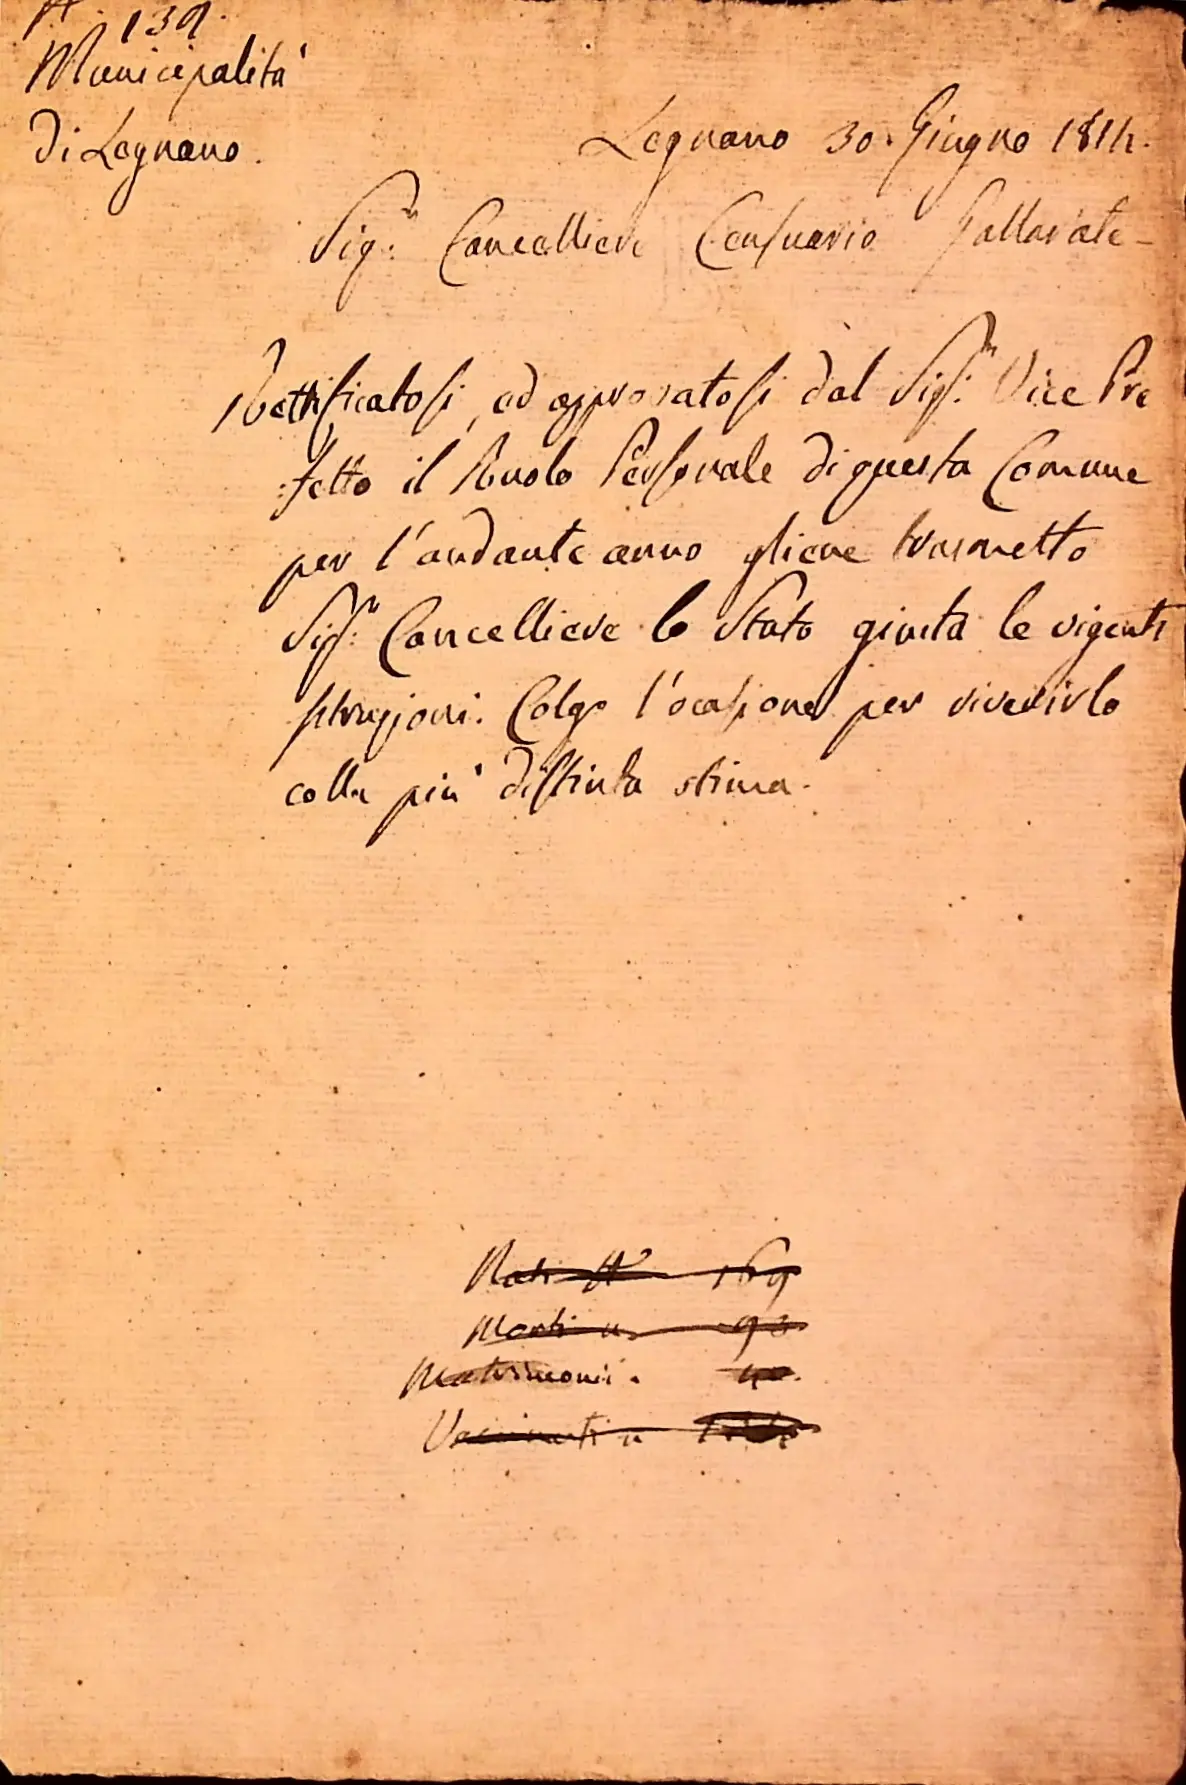 N. 139.
Municipalità
di Legnano.
Legnano 30. Giugno 1814.
Sig.r Cancelliere Censuario Gallarate-
Rettificatosi, ed approvatosi dal Sig.r Vice Pre
:fetto il Ruolo Personale di questa Comune
per l'andante anno gliene trasmetto
Sig.r Cancelliere lo Stato giusta le vigenti
istruzioni. Colgo l'ocasione per riverirlo
colla più distinta stima.
Nati N. 169
Morti n. 93.
Matrimonii. 40.
Vaccinati n